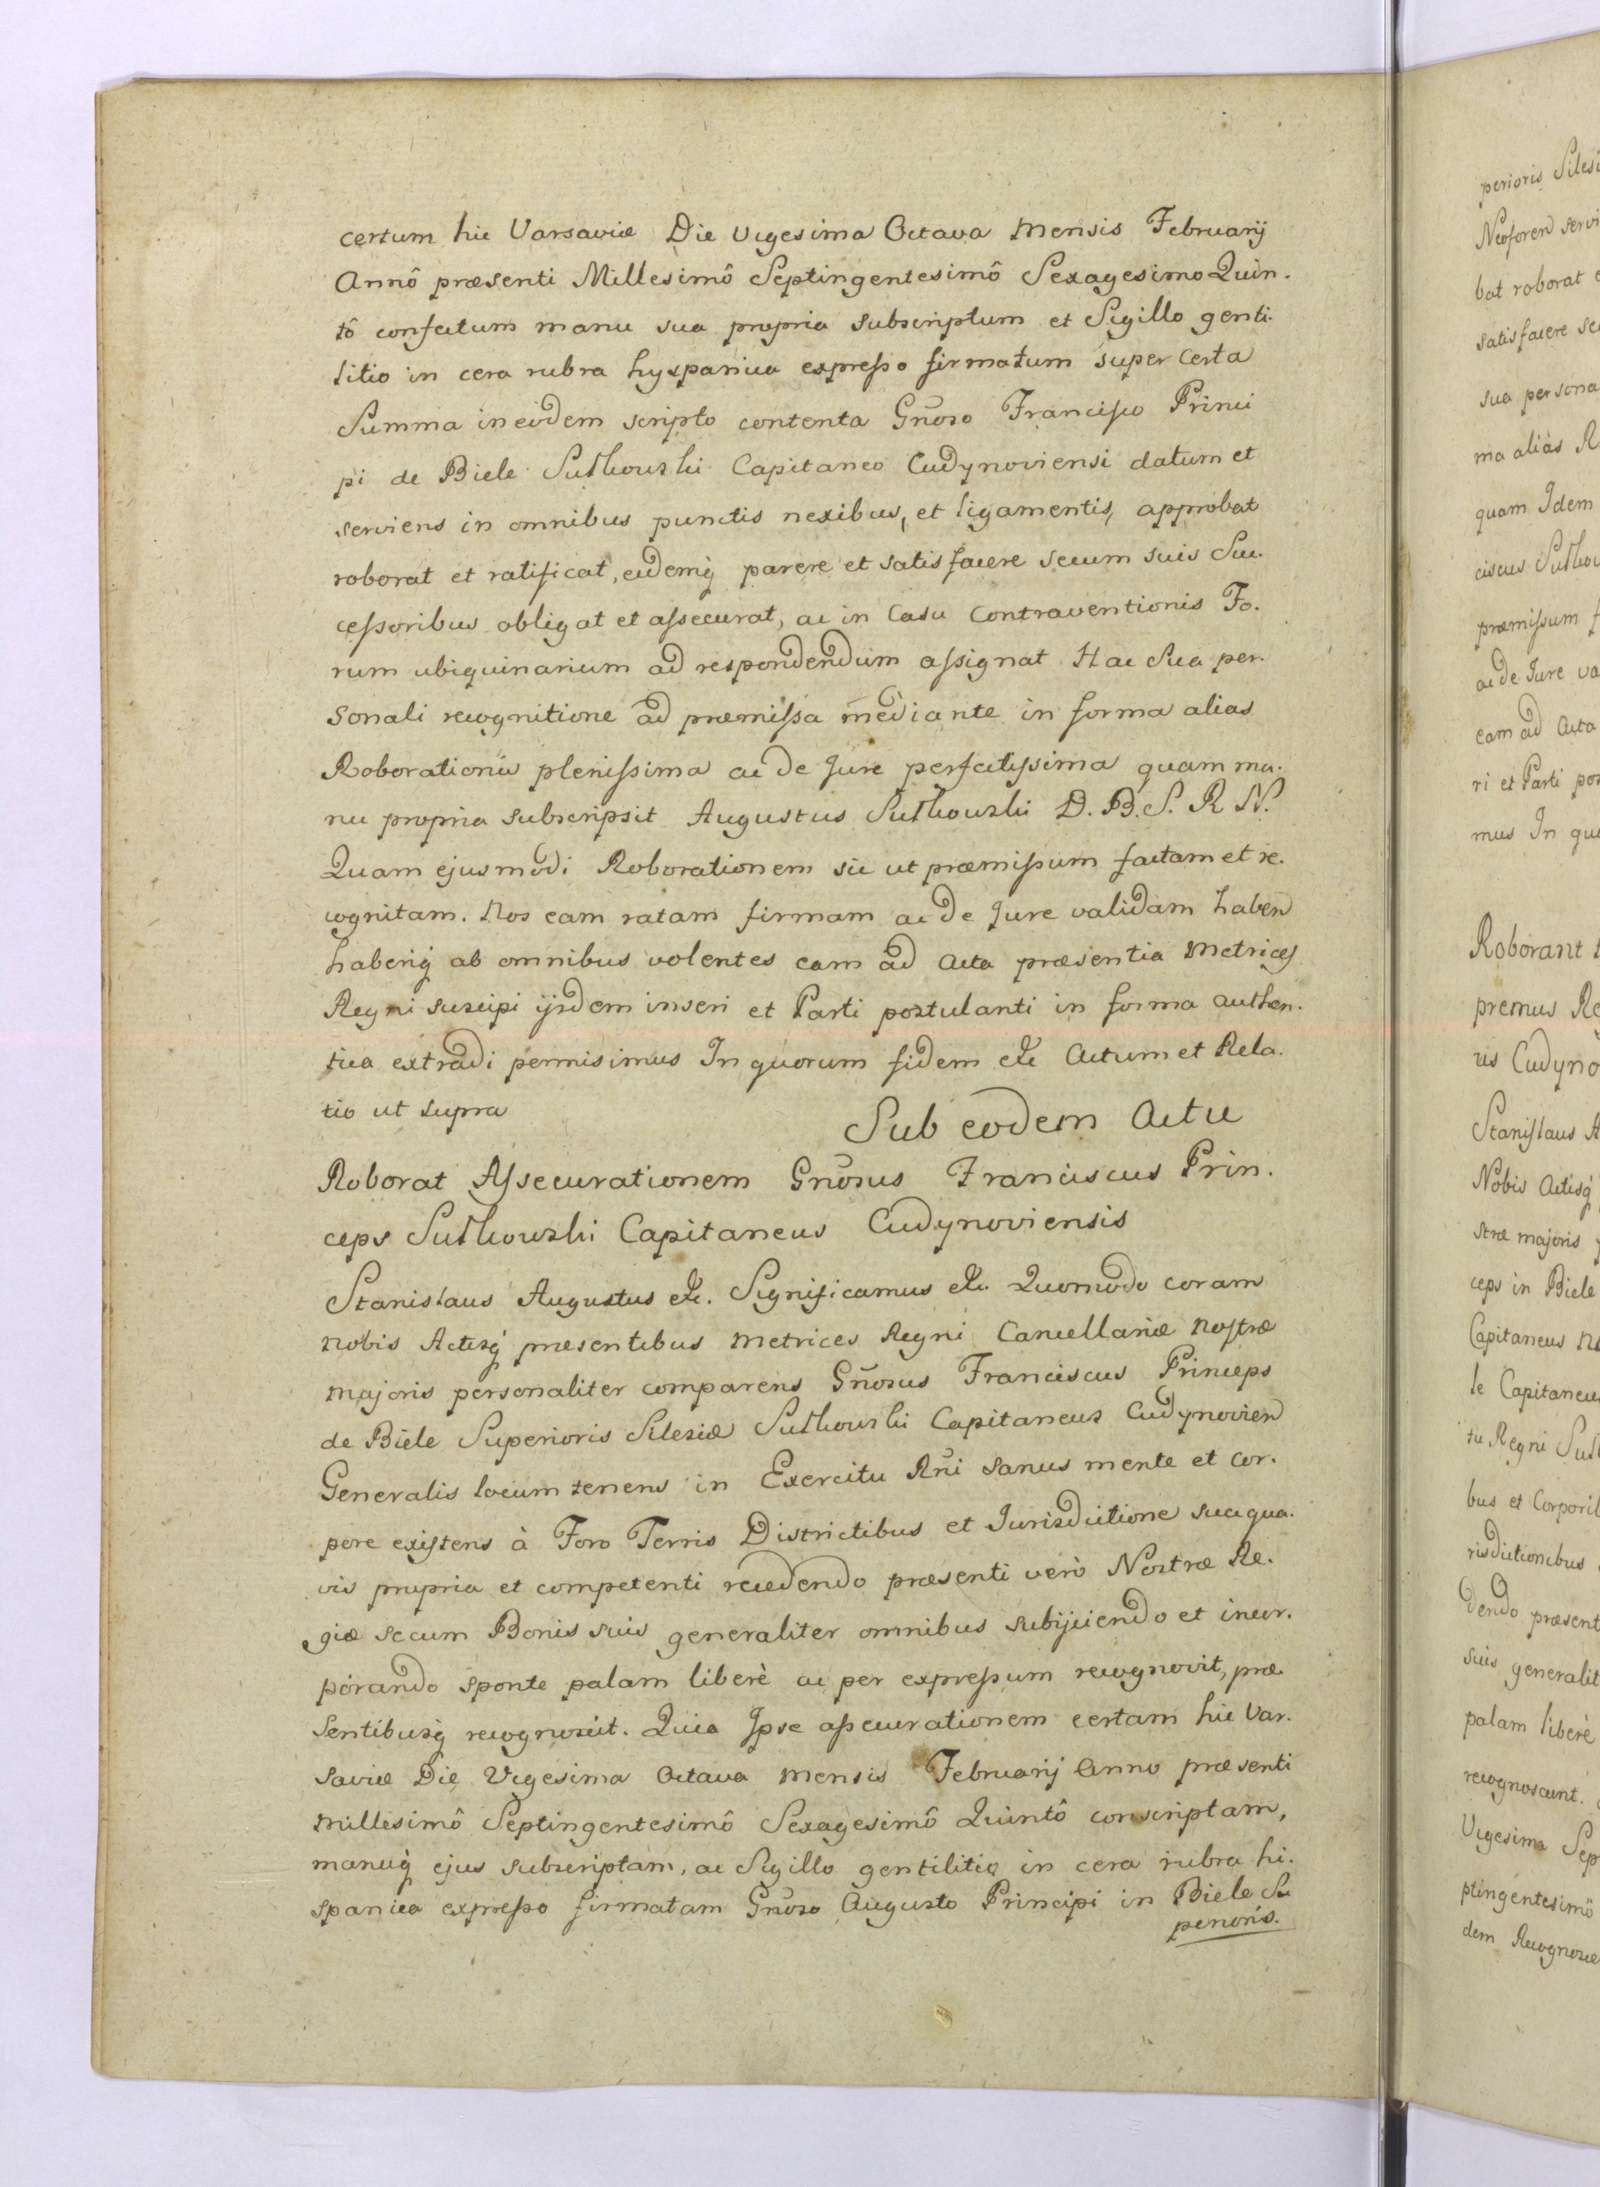 certum hic Varsaviæ Die Vigesima Octava Mensis Februarij
Annô præsenti Millesimô Septingentesimô Sexagesimo Quin-
tô confectum manu sua propria subscriptum et Sigillo genti-
litio in cera rubra hyspanica expresso firmatum super certa
Summa in eodem scripto contenta Gnoso Francisco Princi
pi de Biele Sułkowski Capitaneo Cudynoviensi datum et
serviens in omnibus punctis nexibus, et ligamentis, approbat
roborat et ratificat, eidemq parere et satisfacere secum suis Suc-
cessoribus obligat et assecurat, ac in Casu Contraventionis Fo-
rum ubiquinarium ad respondendum assignat Hac Sua per-
sonali recognitione ad præmissa mediante in forma alias
Roborationis plenissima ac de Jure perfectissima quam ma-
nu propria subscripsit Augustus Sułkowski D. B. S. R N.
Quam ejusmodi Roborationem sic ut præmissum factam et re-
cognitam. Nos eam ratam firmam ac de Jure validam haben
haberiq ab omnibus volentes eam ad Acta præsentia Metrices
Regni suscipi ijsdem inseri et Parti postulanti in forma authen-
tica extradi permisimus In quorum fidem etc Actum et Rela-
tio ut supra
Sub eodem Actu
Roborat Assecurationem Gnosus Franciscus Prin-
ceps Sułkowski Capitaneus Cudynoviensis
Stanislaus Augustus etc. Significamus etc. Quomodo coram
nobis Actisq præsentibus Metrices Regni Cancellariæ Nostræ
Majoris personaliter comparens Gnosus Franciscus Princeps
de Biele Superioris Silesiæ Sułkowski Capitaneus Cudynovien
Generalis locum tenens in Exercitu Rni sanus mente et Cor-
pore existens à Foro Terris Districtibus et Jurisdictione sua qua-
vis propria et competenti recedendo præsenti verò Nostræ Re-
giæ secum Bonis suis generaliter omnibus subijciendo et incor-
porando sponte palam liberè ac per expressum recognovit, præ-
sentibusq recognoscit. Quia Ipse assecurationem certam hic Var-
saviæ Die Vigesima Octava Mensis Februarij Anno præsenti
Millesimô Septingentesimô Sexagesimô Quintô conscriptam,
manuq ejus subscriptam, ac Sigillo gentilitio in cera rubra hi-
spanica expresso firmatam Gnoso Augusto Principi in Biele Su
perioris.
perioris Silesi
Neoforen servi
bat roborat e
satisfacere se
sua persona
ma aliàs R
quam Idem
ciscus Sułkow
præmissum f
ac de Jure va
eam ad Acta
ri et Parti pos
mus In quo
Roborant
premus Re
us Cudyno
Stanislaus A
Nobis Actisq
stræ majoris
ceps in Biele
Capitaneus No
le Capitaneus
tu Regni Suł
bus et Corporib
risdictionibus
dendo præsent
suis generalit
palam liberè
recognoscunt.
Vigesima Sep
ptingentesimô
dem Recognosce